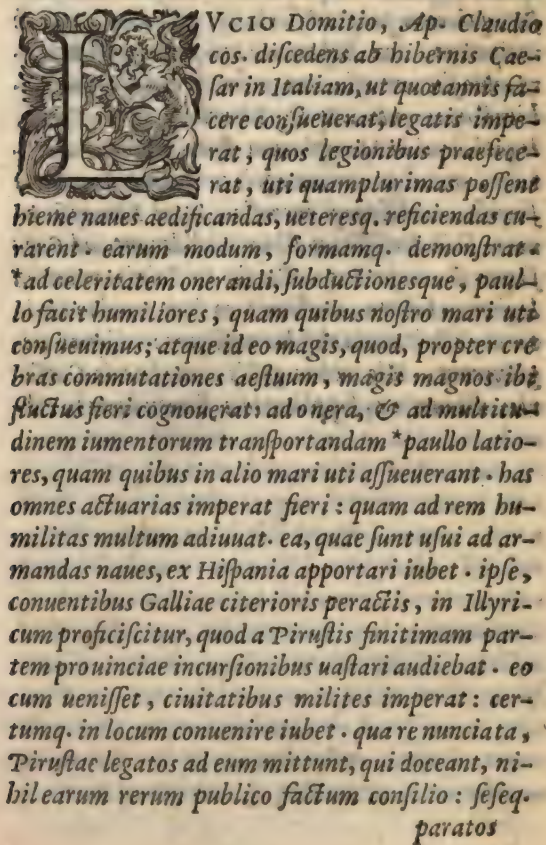 LVCIO Domitio, Ap. Claudio
cos. diſcedens ab hibernis Cae-
ſar in Italiam, ut quotannis fa-
cere conſueuerat, legatis impe-
rat, quos legionibus praefece-
rat, uti quamplurimas poſſent
hieme naues aedificandas, ueteresq. reficiendas cu-
rarent. earum modum, formamq. demonſtrat.
*ad celeritatem onerandi, ſubductionesque, paul-
lo facit humiliores, quam quibus noſtro mari uti
conſueuimus; atque id eo magis, quod, propter cre
bras commutationes aeſtuum, magis magnos ibi
fluctus fieri cognouerat: ad onera, & ad multitu-
dinem iumentorum tranſportandam *paullo latio-
res, quam quibus in alio mari uti aſſueuerant. has
omnes actuarias imperat fieri: quam ad rem hu-
militas multum adiuuat. ea, quae ſunt uſui ad ar-
mandas naues, ex Hiſpania apportari iubet. ipſe,
conuentibus Galliae citerioris peractis, in Illyri-
cum proficiſcitur, quod a Piruſtis finitimam par-
tem prouinciae incurſionibus uaſtari audiebat. eo
cum ueniſſet, ciuitatibus milites imperat: cer-
tumq. in locum conuenire iubet. qua re nunciata,
Piruſtae legatos ad eum mittunt, qui doceant, ni-
hil earum rerum publico factum conſilio: ſeſeq.
paratos